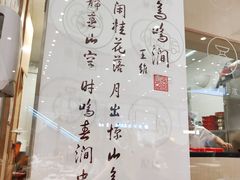 鸟鸣涧
王维
闲桂花落 月出惊山鸟
静春山空 时鸣春涧中